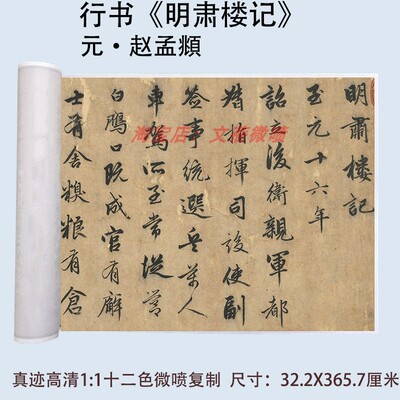 行书《明肃楼记》
元·赵孟頫
明肅樓記
至元十六年
詔立後衛親軍都
指揮司設使副
簽事統選兵萬人
車駕所至常從營
白鴈口既成官有廨
士有舍糗粮有倉
淘宝店
真迹高清1:1十二色微喷复制 尺寸：32.2X365.7厘米